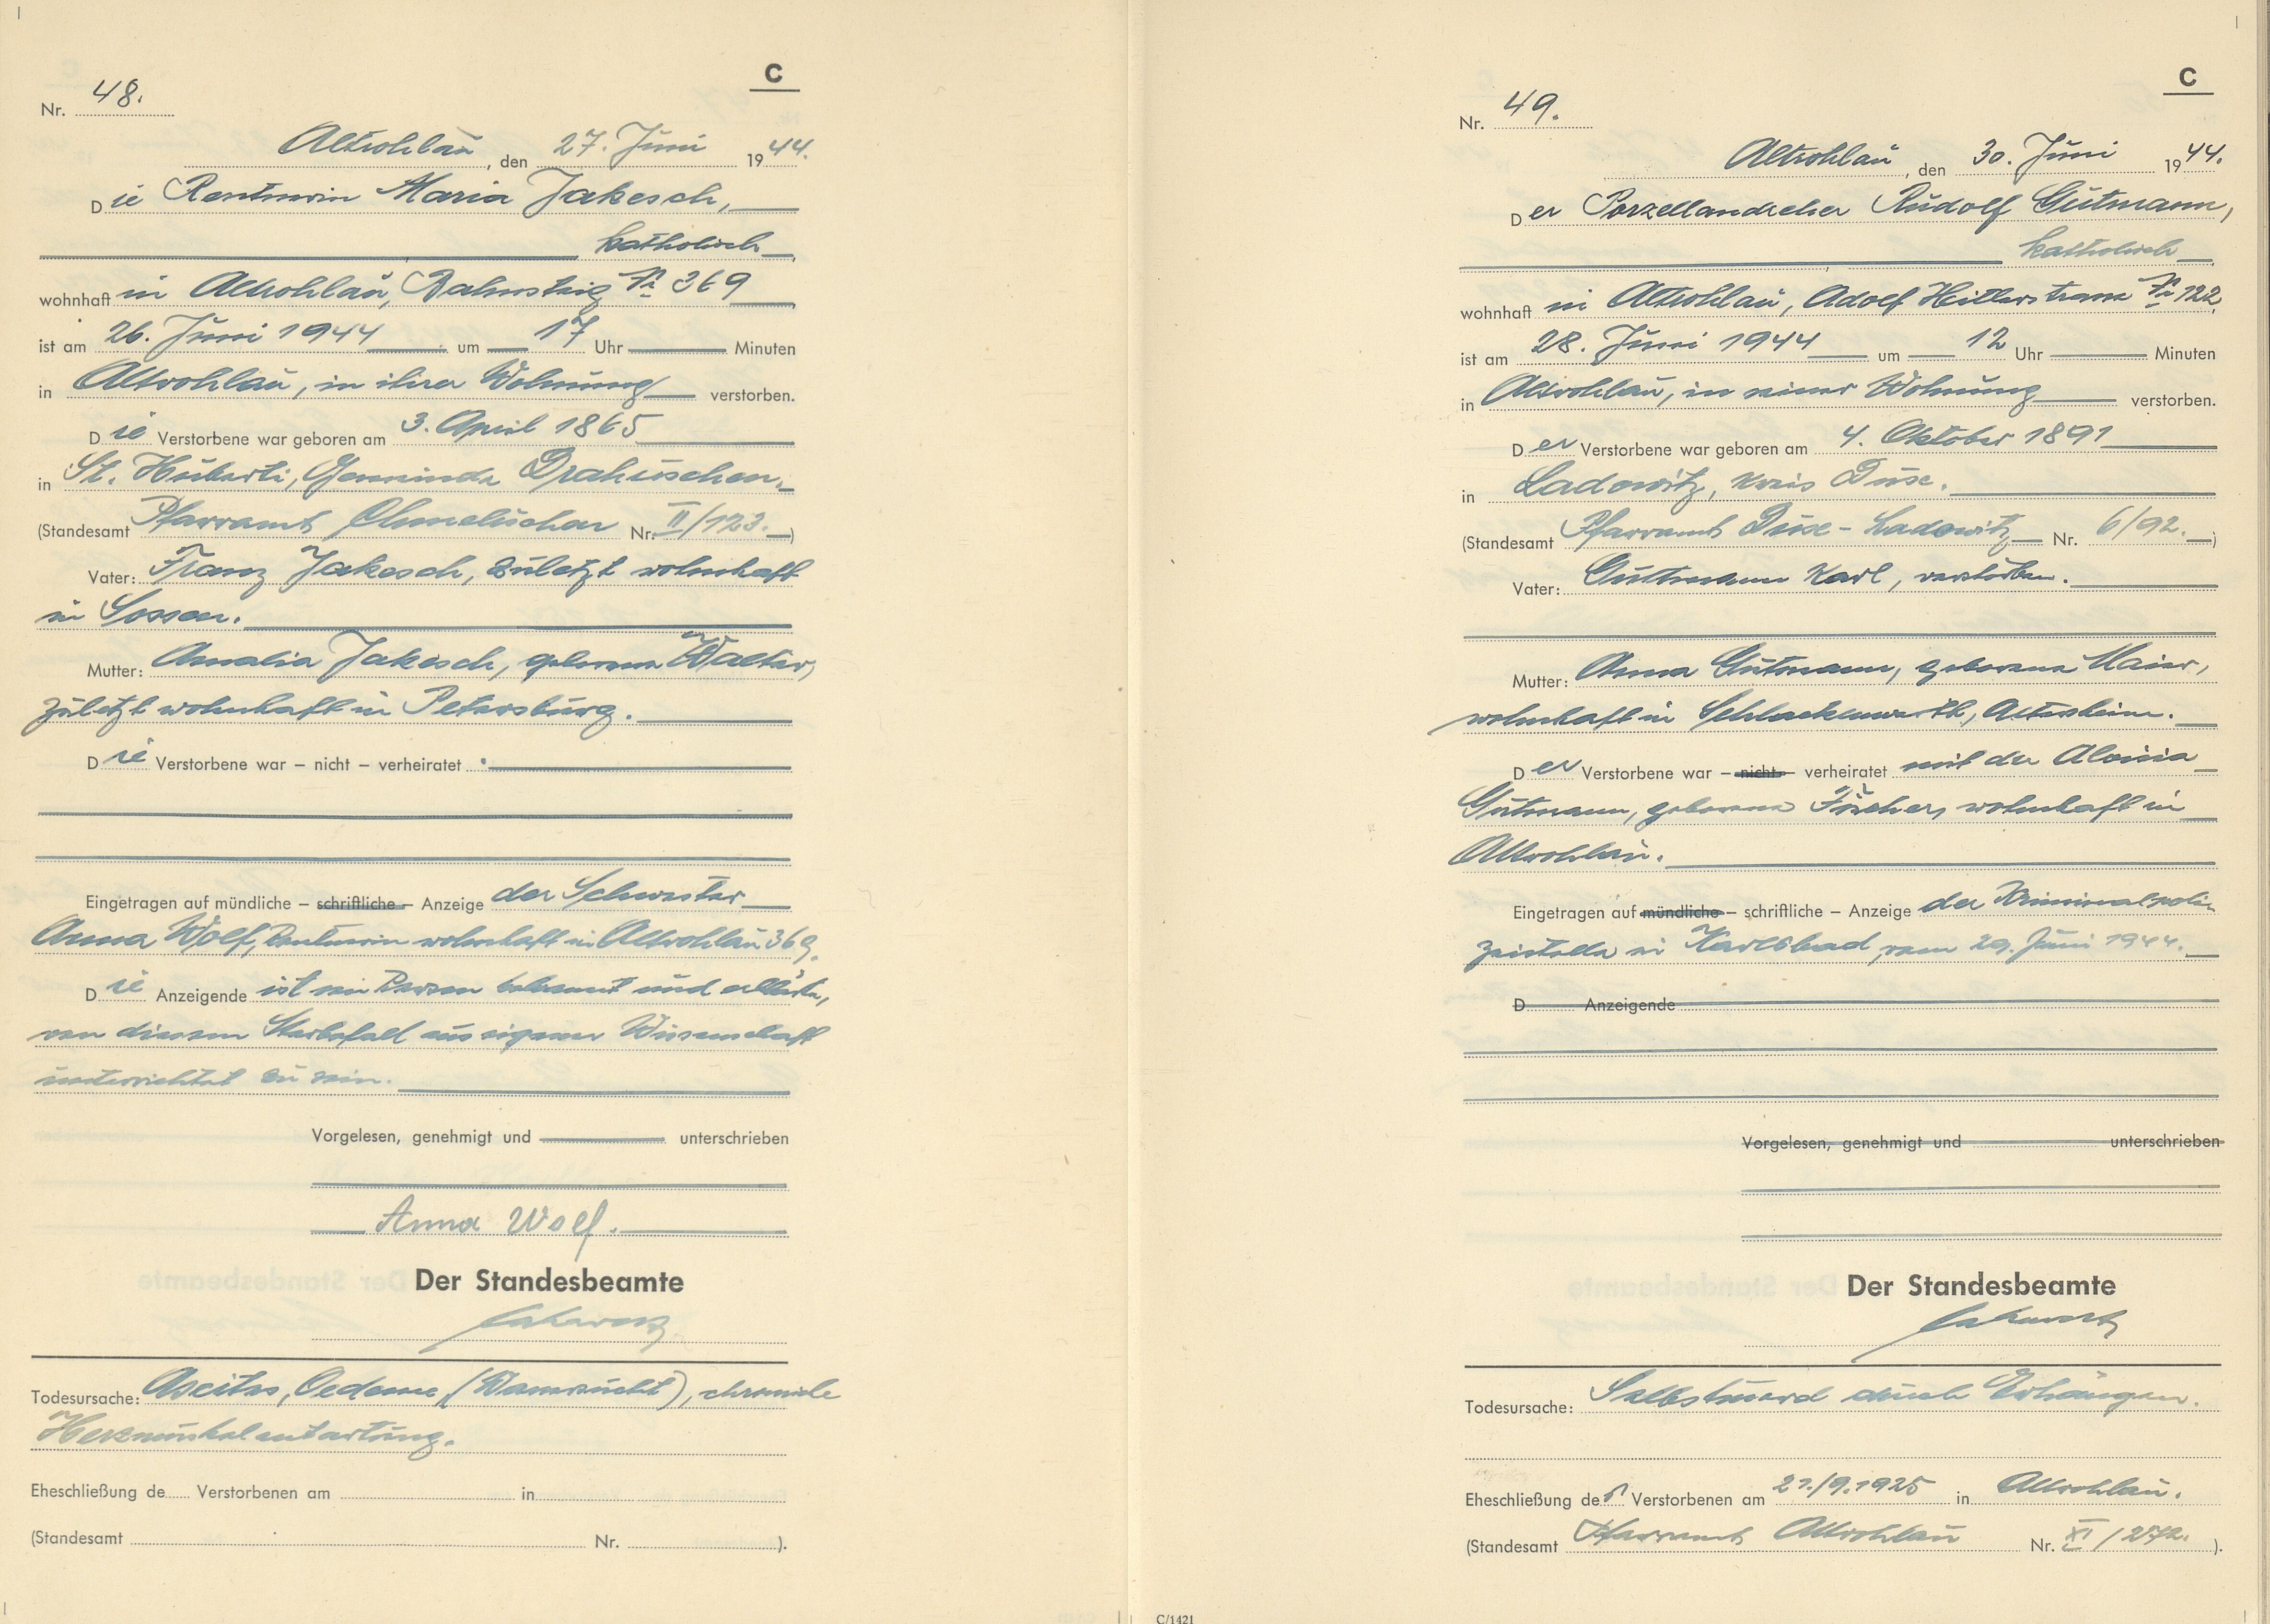 C
Nr. 48.
Altrohlau, den 27. Juni 1944.
Die Rentnerin Maria Jakesch,
katholisch,
wohnhaft in Altrohlau, Bahnsteig № 369
ist am 26. Juni 1944 um 17 Uhr Minuten
in Altrohlau, in ihrer Wohnung verstorben.
Die Verstorbene war geboren am 3. April 1865
in St. Huberti, Gemeinde Drahuschen.
(Standesamt Pfarramt Chmelischen Nr. II/123.)
Vater: Franz Jakesch, zuletzt wohnhaft
in Sossen.
Mutter: Amalia Jakesch, geborene Walter,
zuletzt wohnhaft in Petersburg.
Die Verstorbene war – nicht – verheiratet.
Eingetragen auf mündliche – schriftliche – Anzeige der Schwester
Anna Wolf, Rentnerin wohnhaft in Altrohlau 369.
Die Anzeigende ist von Person bekannt und erklärte,
von diesem Sterbefall aus eigener Wissenschaft
unterrichtet zu sein.
Vorgelesen, genehmigt und unterschrieben
Anna Wolf.
Der Standesbeamte
Todesursache: Ascites, Oedeme (Wassersucht), chronische
Herzmuskelentartung.
Eheschließung de Verstorbenen am in
(Standesamt Nr. ).
C
Nr. 49.
Altrohlau, den 30. Juni 1944.
Der Porzellandreher Rudolf Gutmann,
katholisch,
wohnhaft in Altrohlau, Adolf Hitlerstrasse № 122,
ist am 28. Juni 1944 um 12 Uhr Minuten
in Altrohlau, in seiner Wohnung verstorben.
Der Verstorbene war geboren am 4. Oktober 1891
in Ladowitz, Kreis Dux.
(Standesamt Pfarramt Dux - Ladowitz Nr. 6/92.)
Vater: Guttmann Karl, verstorben.
Mutter: Anna Gutmann, geborene Maier,
wohnhaft in Schlackenwerth, Altersheim.
Der Verstorbene war – nicht – verheiratet mit der Aloisia
Gutmann, geborene Fischer, wohnhaft in
Altrohlau.
Eingetragen auf mündliche – schriftliche – Anzeige der Kriminalpoli-
zeistelle in Karlsbad, vom 29. Juni 1944.
D Anzeigende
Vorgelesen, genehmigt und unterschrieben
Der Standesbeamte
Todesursache: Selbstmord durch Erhängen.
Eheschließung des Verstorbenen am 21./9.1925 in Altrohlau.
(Standesamt Pfarramt Altrohlau Nr. XI/272. ).
C/1421